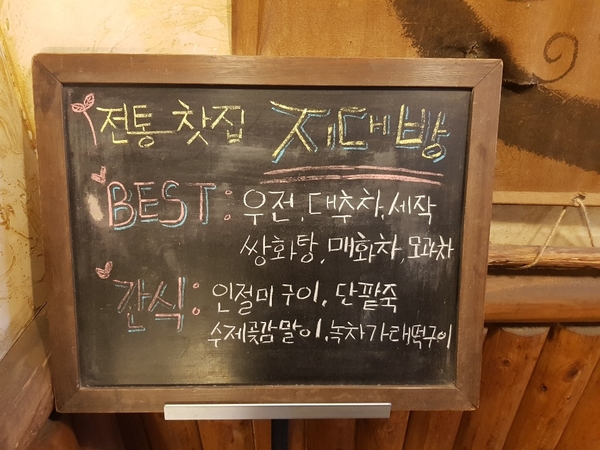 전통 찻집 지대방
BEST: 우전, 대추차, 세작
쌍화탕, 매화차, 모과차
간식: 인절미 구이, 단팥죽
수제곶감말이, 녹차가래떡구이